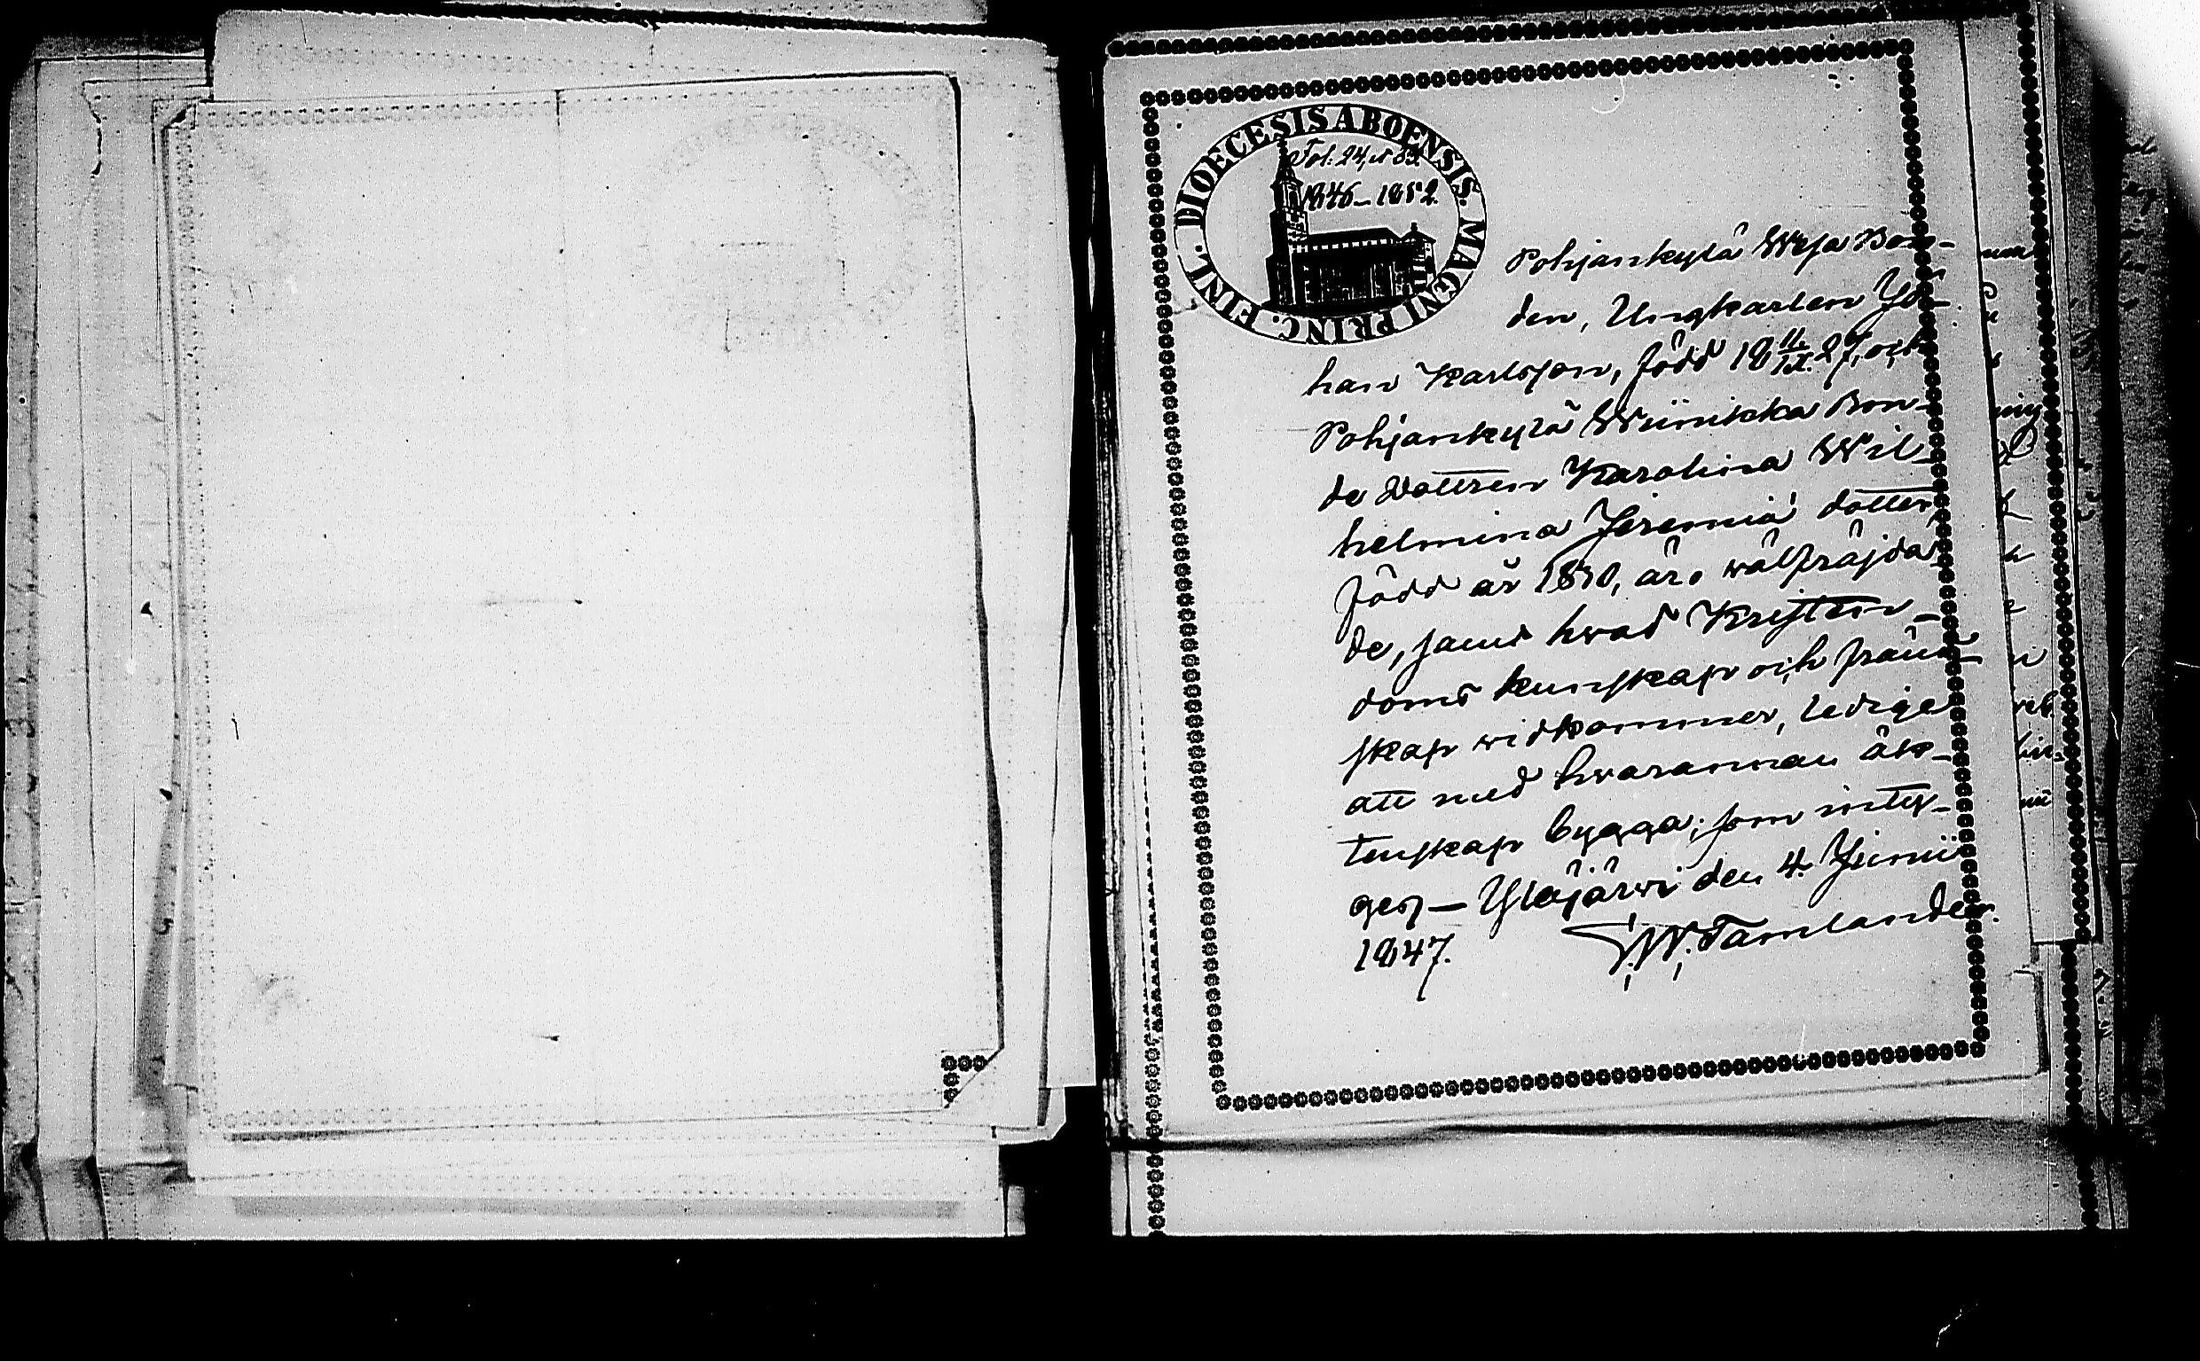 DIOECESIS ABOENSIS. MAGNI PRINC. FINL.
Fol: 24, et 83.
1846–1852.
Pohjankylä Weja Bon-
den, Ungkarlen Jo-
han Karlsson, född 18 11/IX. 27, och
Pohjankylä Wiinikka Bon-
de dottren Karolina Wil-
helmina Jeremiä dotter
född år 1830, äro wälfräjda-
de, samt hwad Kristen-
doms kunskap och fränd-
skap widkommer, lediga
att med hwarannan äk-
tenskap bygga; som intÿ-
gas — Ylöjärwi den 4. Junii
1847. F. W. Tamlander.